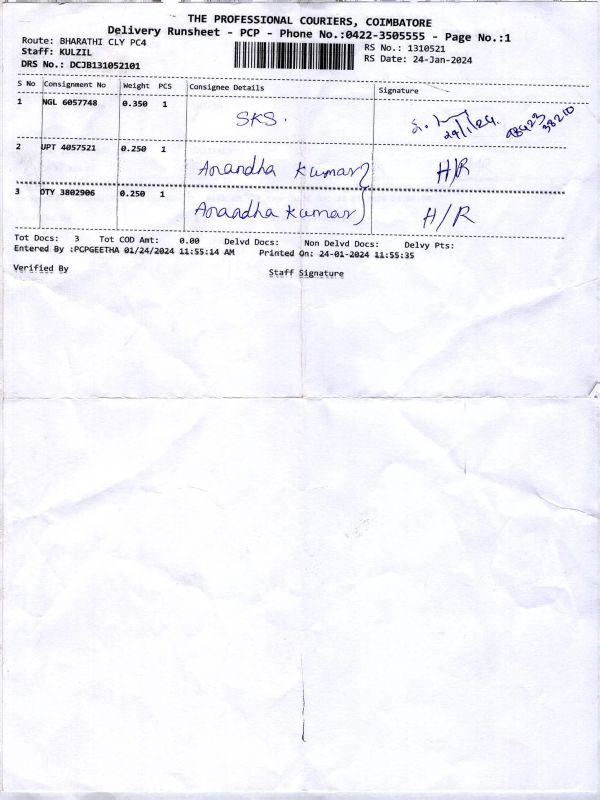 THE PROFESSIONAL COURIERS, COIMBATORE
Delivery Runsheet - PCP - Phone No.:0422-3505555 - Page No.:1
Route: BHARATHI CLY PC4
RS No.: 1310521
Staff: KULZIL
RS Date: 24-Jan-2024
DRS No.: DCJB131052101
S No Consignment No Weight PCS Consignee Details Signature
1 NGL 6057748 0.350 1 SKS. 24/1/24. 98423 38210
2 UPT 4057521 0.250 1 Anandha Kumar H/R
3 OTY 3802906 0.250 1 Anandha Kumar H/R
Tot Docs: 3 Tot COD Amt: 0.00 Delvd Docs: Non Delvd Docs: Delvy Pts:
Entered By :PCPGEETHA 01/24/2024 11:55:14 AM Printed On: 24-01-2024 11:55:35
Verified By Staff Signature